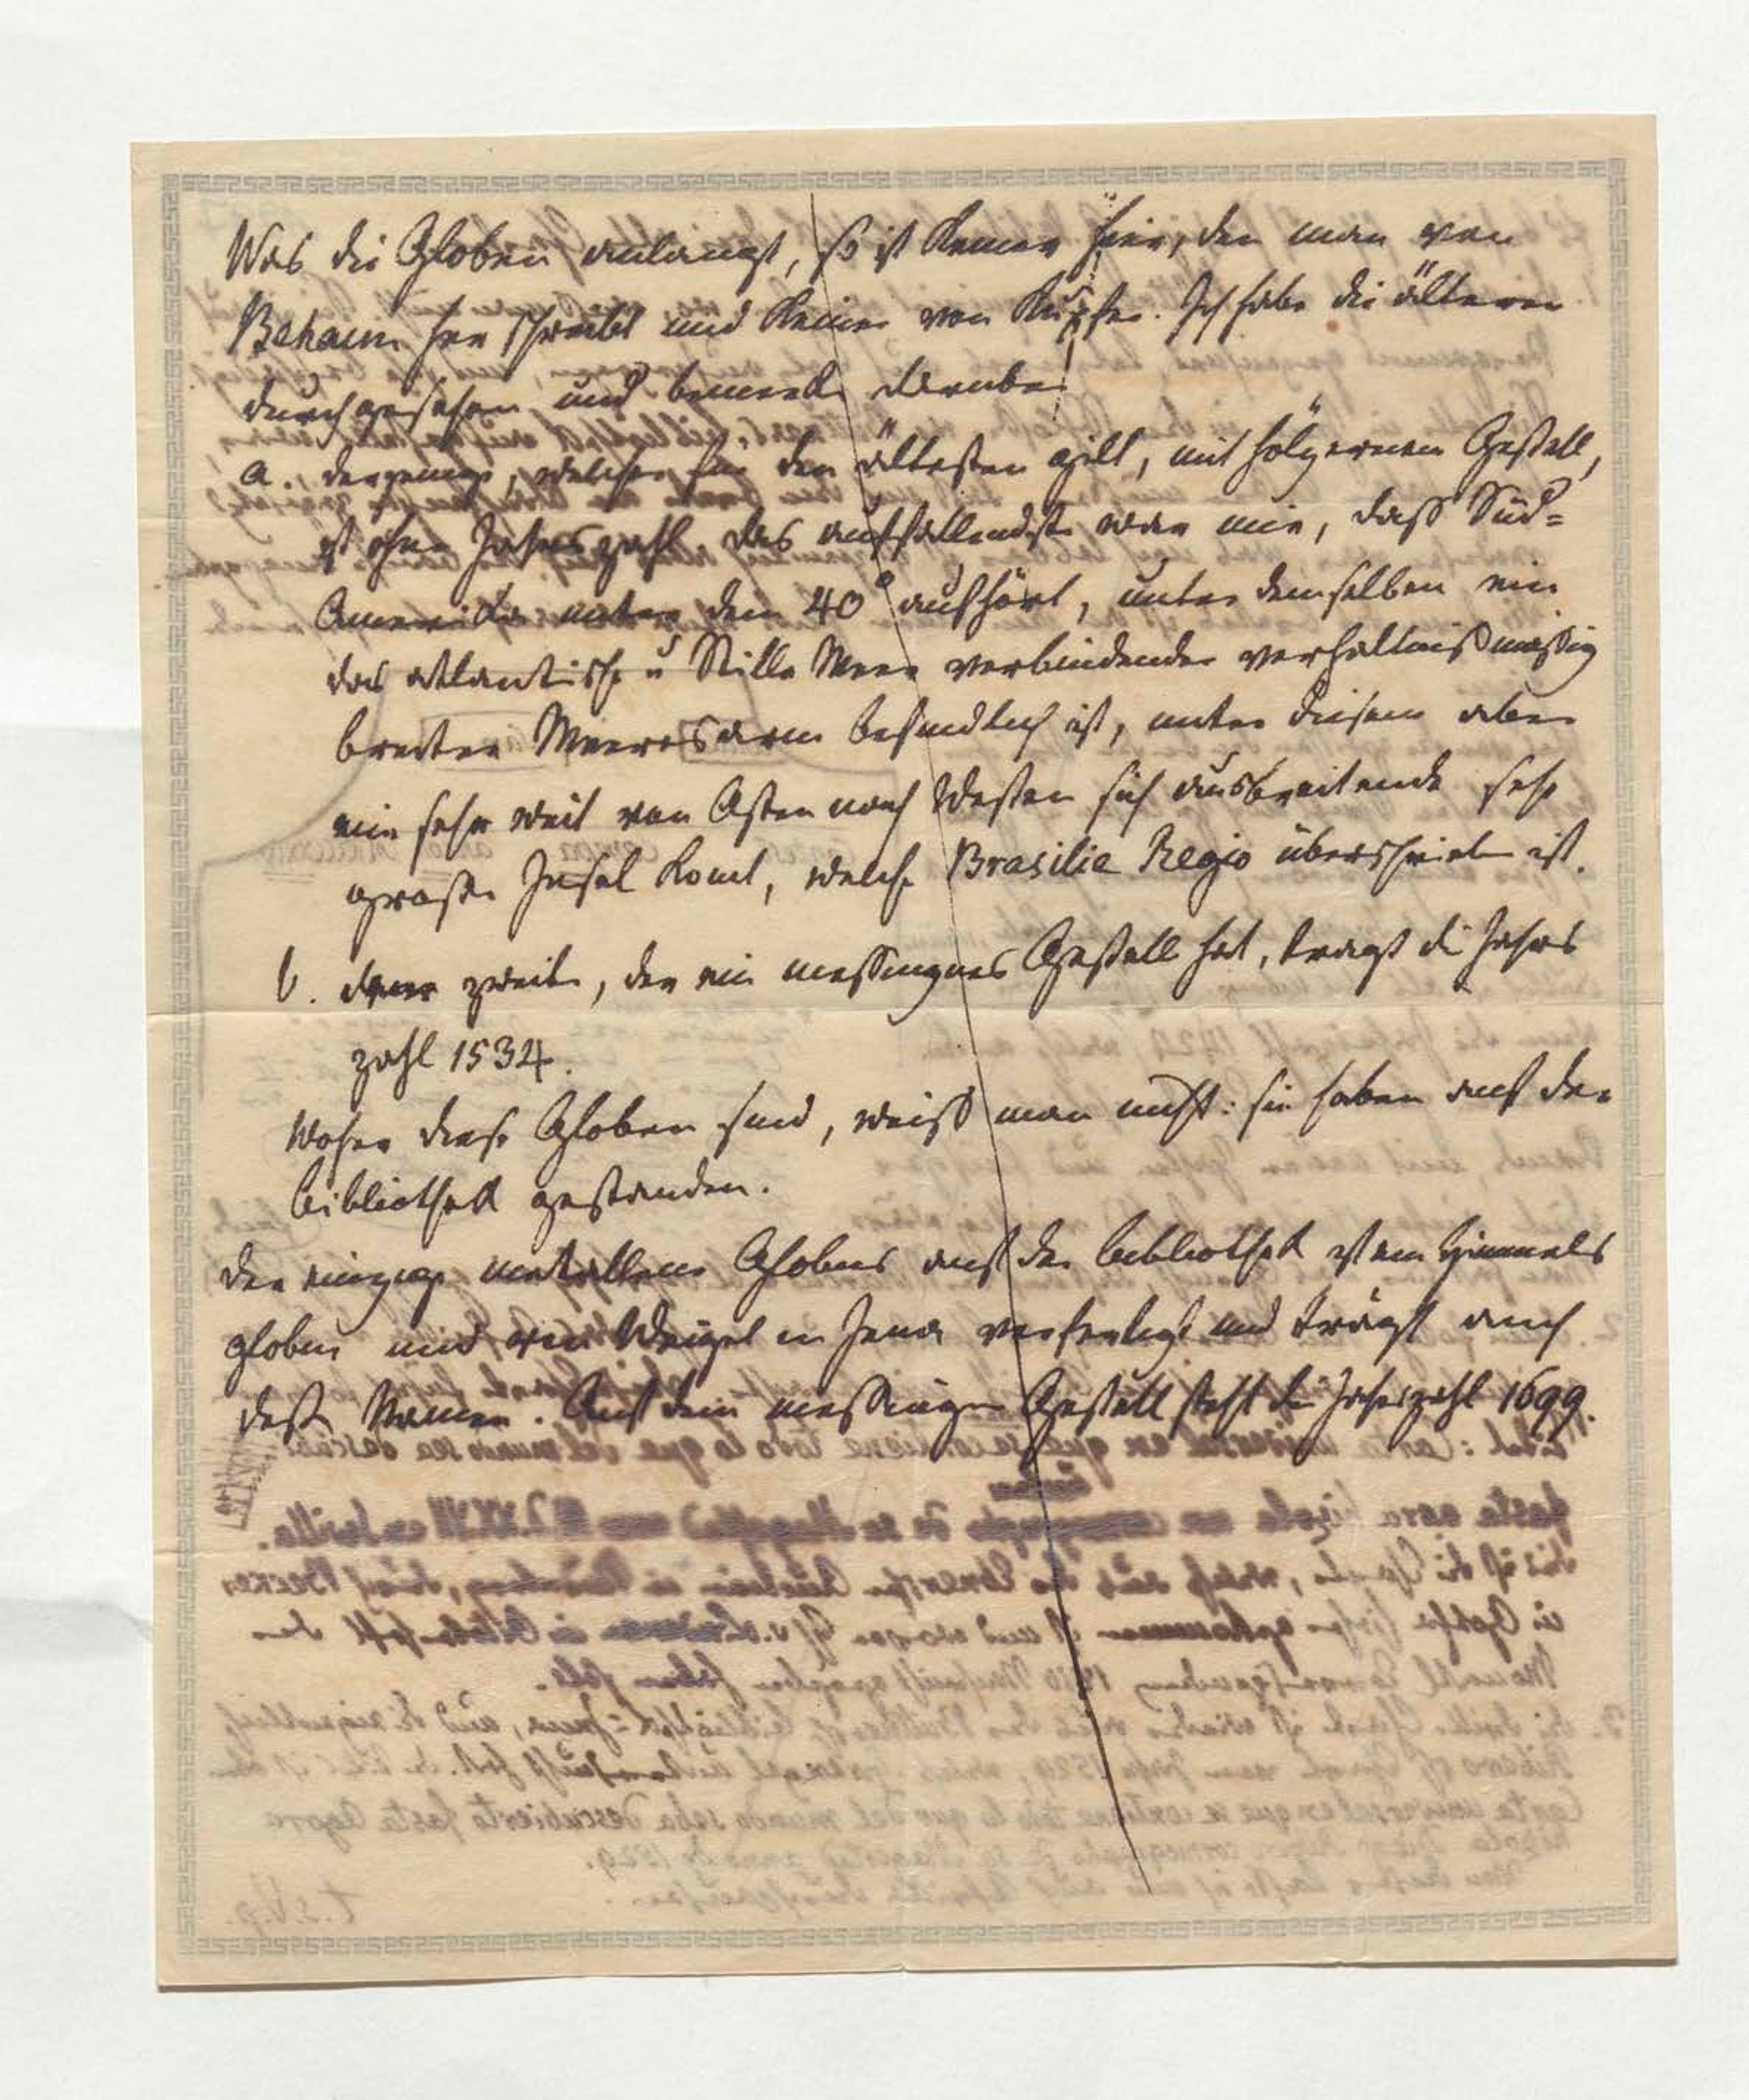 Was die Globen anlangt, so ist keiner hier, den man von
Behaim her schreibt und keiner von Kupfer. Ich habe die älteren
durchgesehen und bemerke darüber
a. derjenige, welcher für den ältesten gilt, mit hölzernem Gestell,
ist ohne Jahrszahl. Das auffallendste war mir, daß Süd=
Amerika unter dem 40° aufhört, unter demselben ein
das atlantische u Stille Meer verbindender verhältnißmässig
breiter Meeresarm befindlich ist, unter diesem aber
eine sehr weit von Osten nach Westen sich ausbreitende sehr
große Insel komt, welche Brasilie Regio überschrieben ist.
b. der zweite, der ein messingnes Gestell hat, trägt die Jahrs
zahl 1534.
Woher diese Globen sind, weiß man nicht: sie haben auf der
Bibliothek gestanden.
Der einzige metallene Globus auf der Bibliothek ist ein Himmels
globus und von Weigel in Jena verfertigt und trägt auch
deße Namen. Auf dem messingn Gestell steht die Jahreszahl 1699.